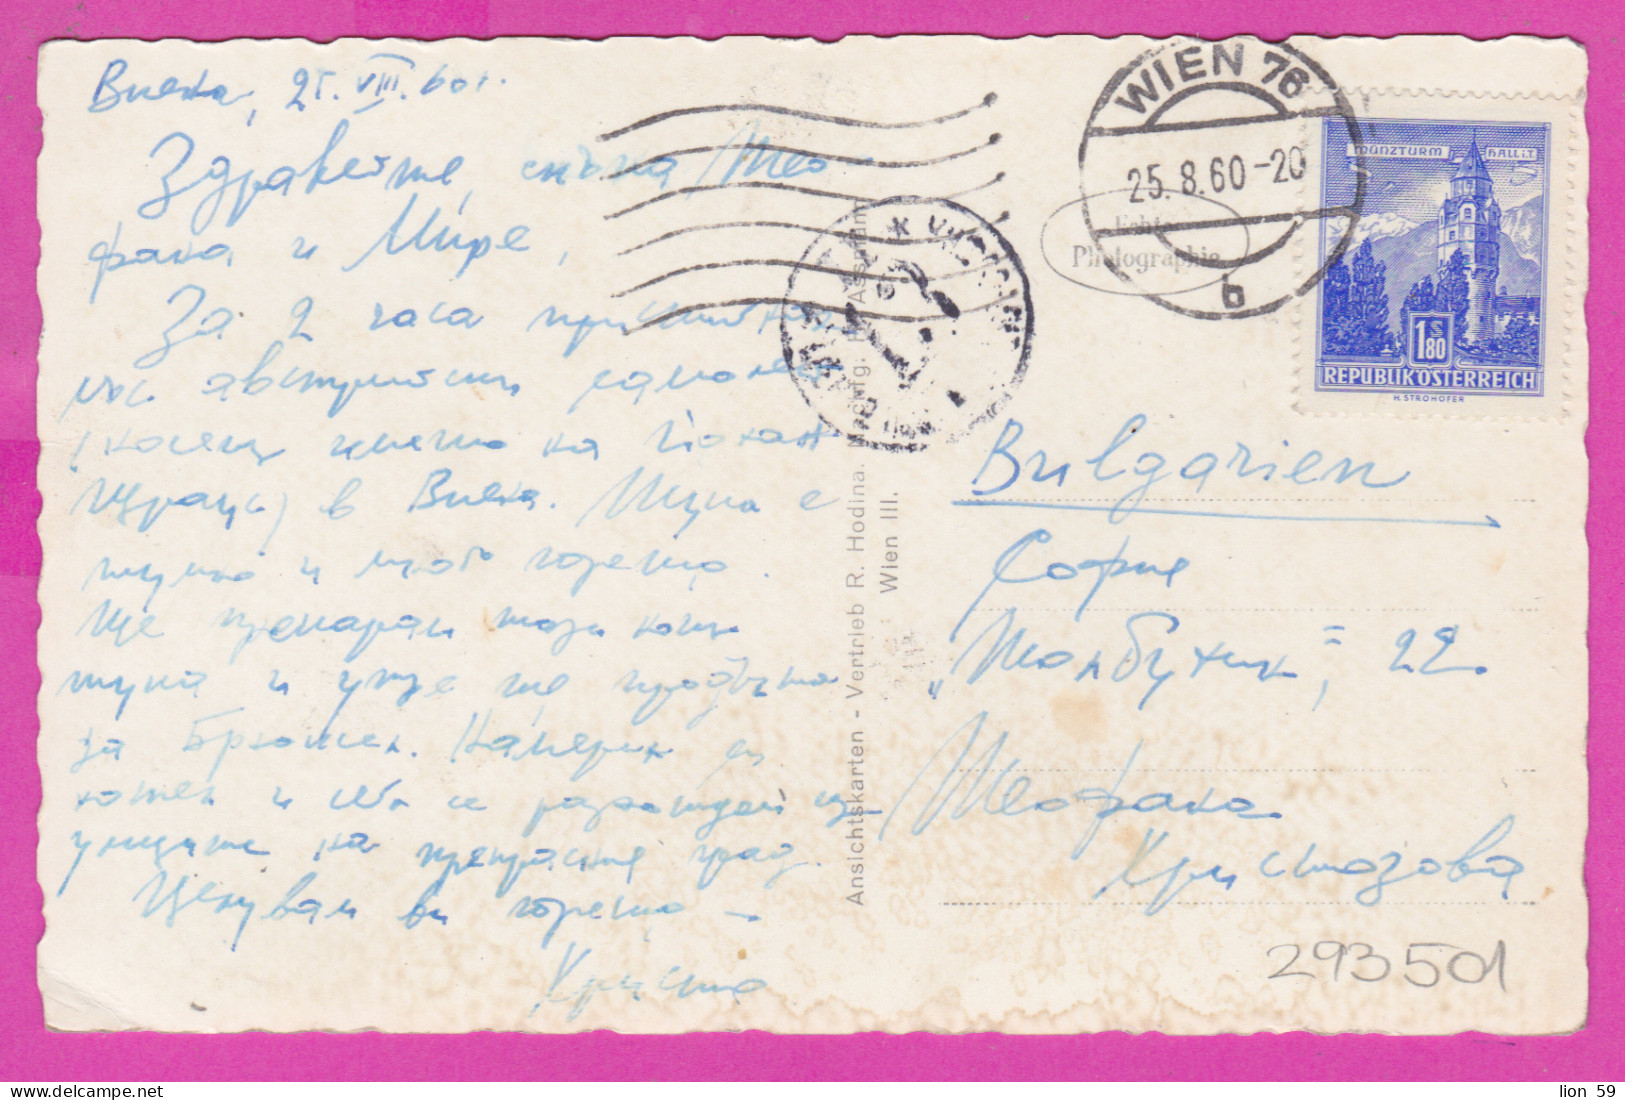 Виена, 25.VIII.60 г.
Здравейте, скъпа Тео-
фана и Мире,
За 2 часа пристигнах
със австрийски самолет
(носещ името на Йохан
Щраус) в Виена. Тука е
шумно и много горещо.
Ще прекарам тази нощ
тука и утре ще продължа
за Брюксел. Намерих си
хотел и сега се разхождам из
улиците на прекрасния град.
Целувам ви горещо –
Христо
WIEN 76
25.8.60-20
b
Echte
Photographie
MÜNZTURM HALL i.T.
1 S 80
REPUBLIK ÖSTERREICH
H. STROHOFER
Ansichtskarten - Vertrieb R. Hodina. Nachfg. H. Assmann
Wien III.
Bulgarien
София
"Толбухин", 22.
Теофана
Христозова
293501
lion 59